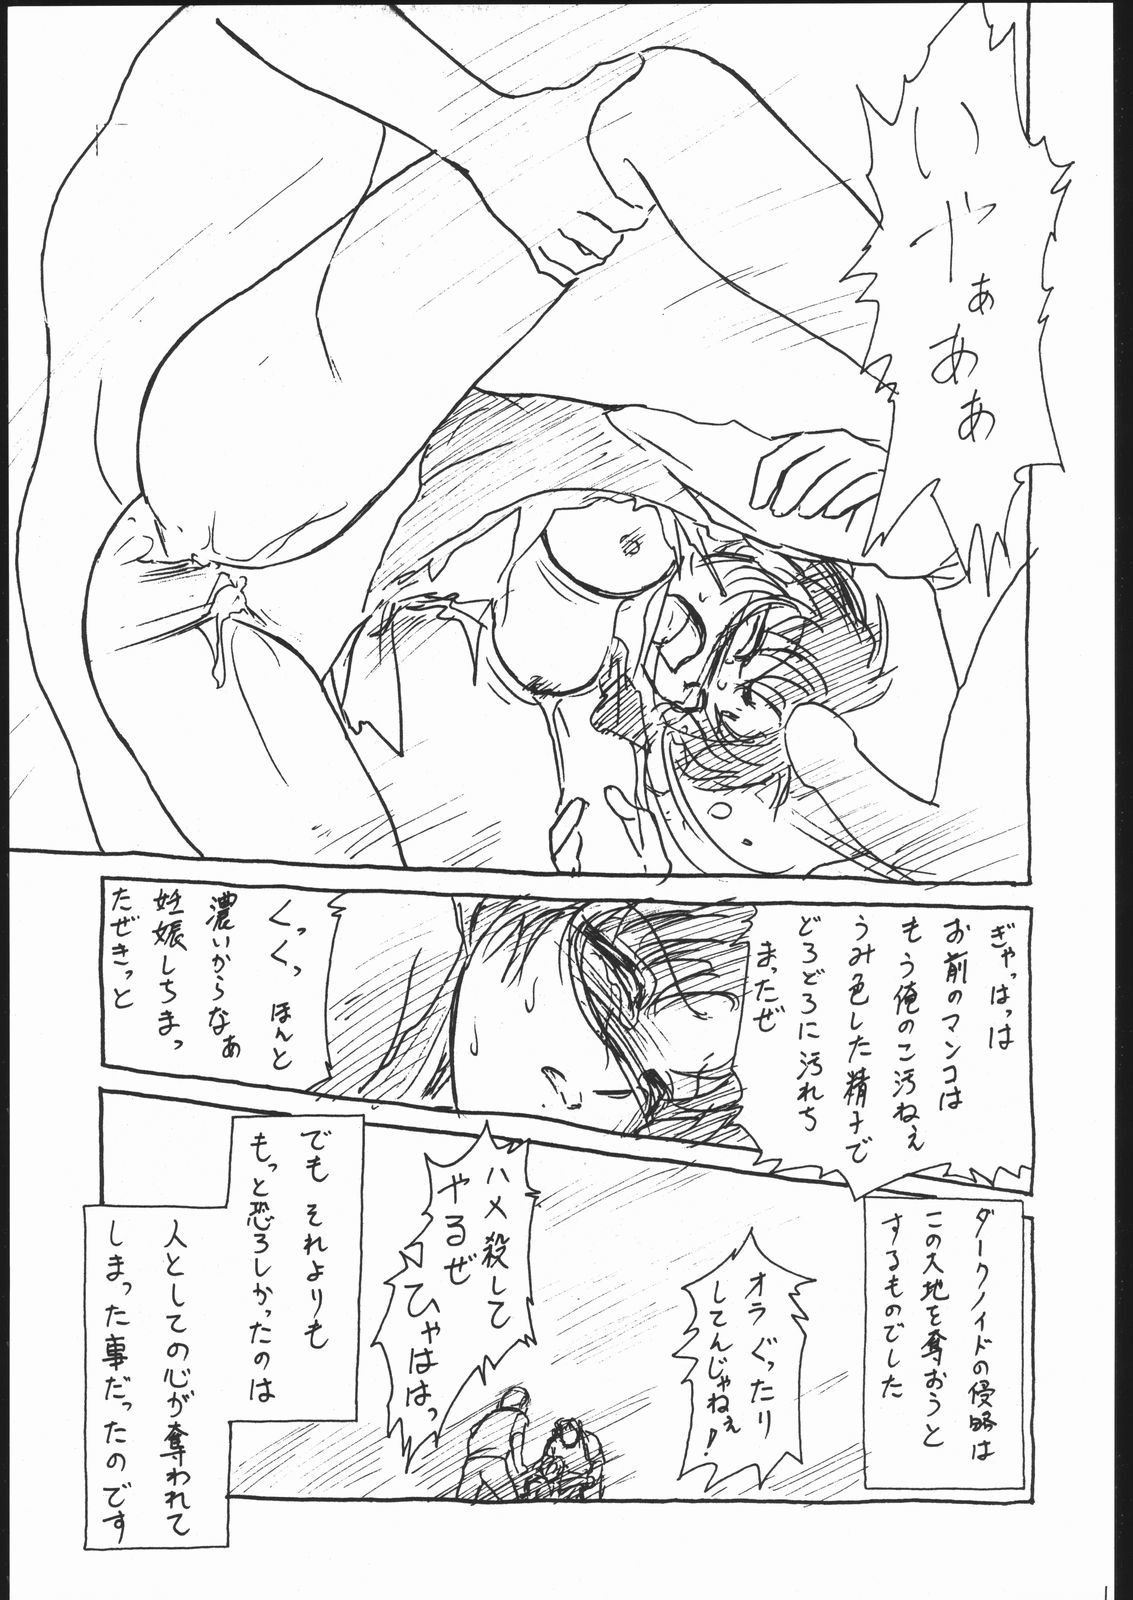 いやぁああ
ぎゃっはっは
お前のマンコは
もう俺のこ汚ねぇ
うみ色した精子で
どろどろに汚れち
まったぜ
くっくっ ほんと
濃いからなぁ
妊娠しちまっ
たぜきっと
ダークノイドの侵略は
この大地を奪おうと
するものでした
オラぐったり
してんじゃねぇ!
ハメ殺して
やるぜ
ひゃはは
でも それよりも
もっと恐ろしかったのは
人としての心が奪われて
しまった事だったのです